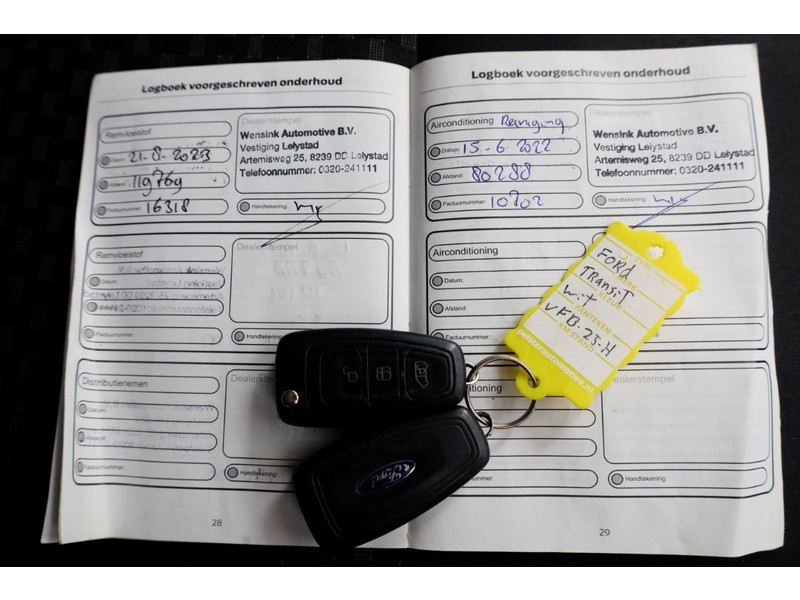 Logboek voorgeschreven onderhoud
Remvloeistof
Datum: 21-8-2023
Afstand: 119769
Factuurnummer: 16318
Dealerstempel
Wensink Automotive B.V.
Vestiging Lelystad
Artemisweg 25, 8239 DD Lelystad
Telefoonnummer: 0320-241111
Handtekening:
Remvloeistof
Datum:
Afstand:
Factuurnummer:
Dealerstempel
Handtekening:
Distributieriemen
Datum:
Afstand:
Factuurnummer:
Handtekening:
28
Logboek voorgeschreven onderhoud
Airconditioning Reiniging
Datum: 15-6-2022
Afstand: 80288
Factuurnummer: 10702
Dealerstempel
Wensink Automotive B.V.
Vestiging Lelystad
Artemisweg 25, 8239 DD Lelystad
Telefoonnummer: 0320-241111
Handtekening:
Airconditioning
Datum:
Afstand:
Factuurnummer:
Dealerstempel
Handtekening:
29
FORD
TRANSIT
KLEUR
Wit
KENTEKEN
VFB-23-H
KM.STAND
pelserautomotive.nl
Ford